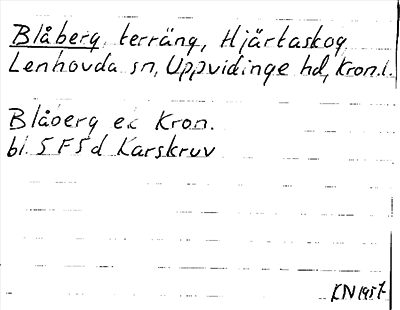 Blåberg, terräng, Hjärtaskog
Lenhovda sn, Uppvidinge hd, Kron.l.
Blåberg ek Kron.
bl. 5 F 5 d Karskruv
KN 1957